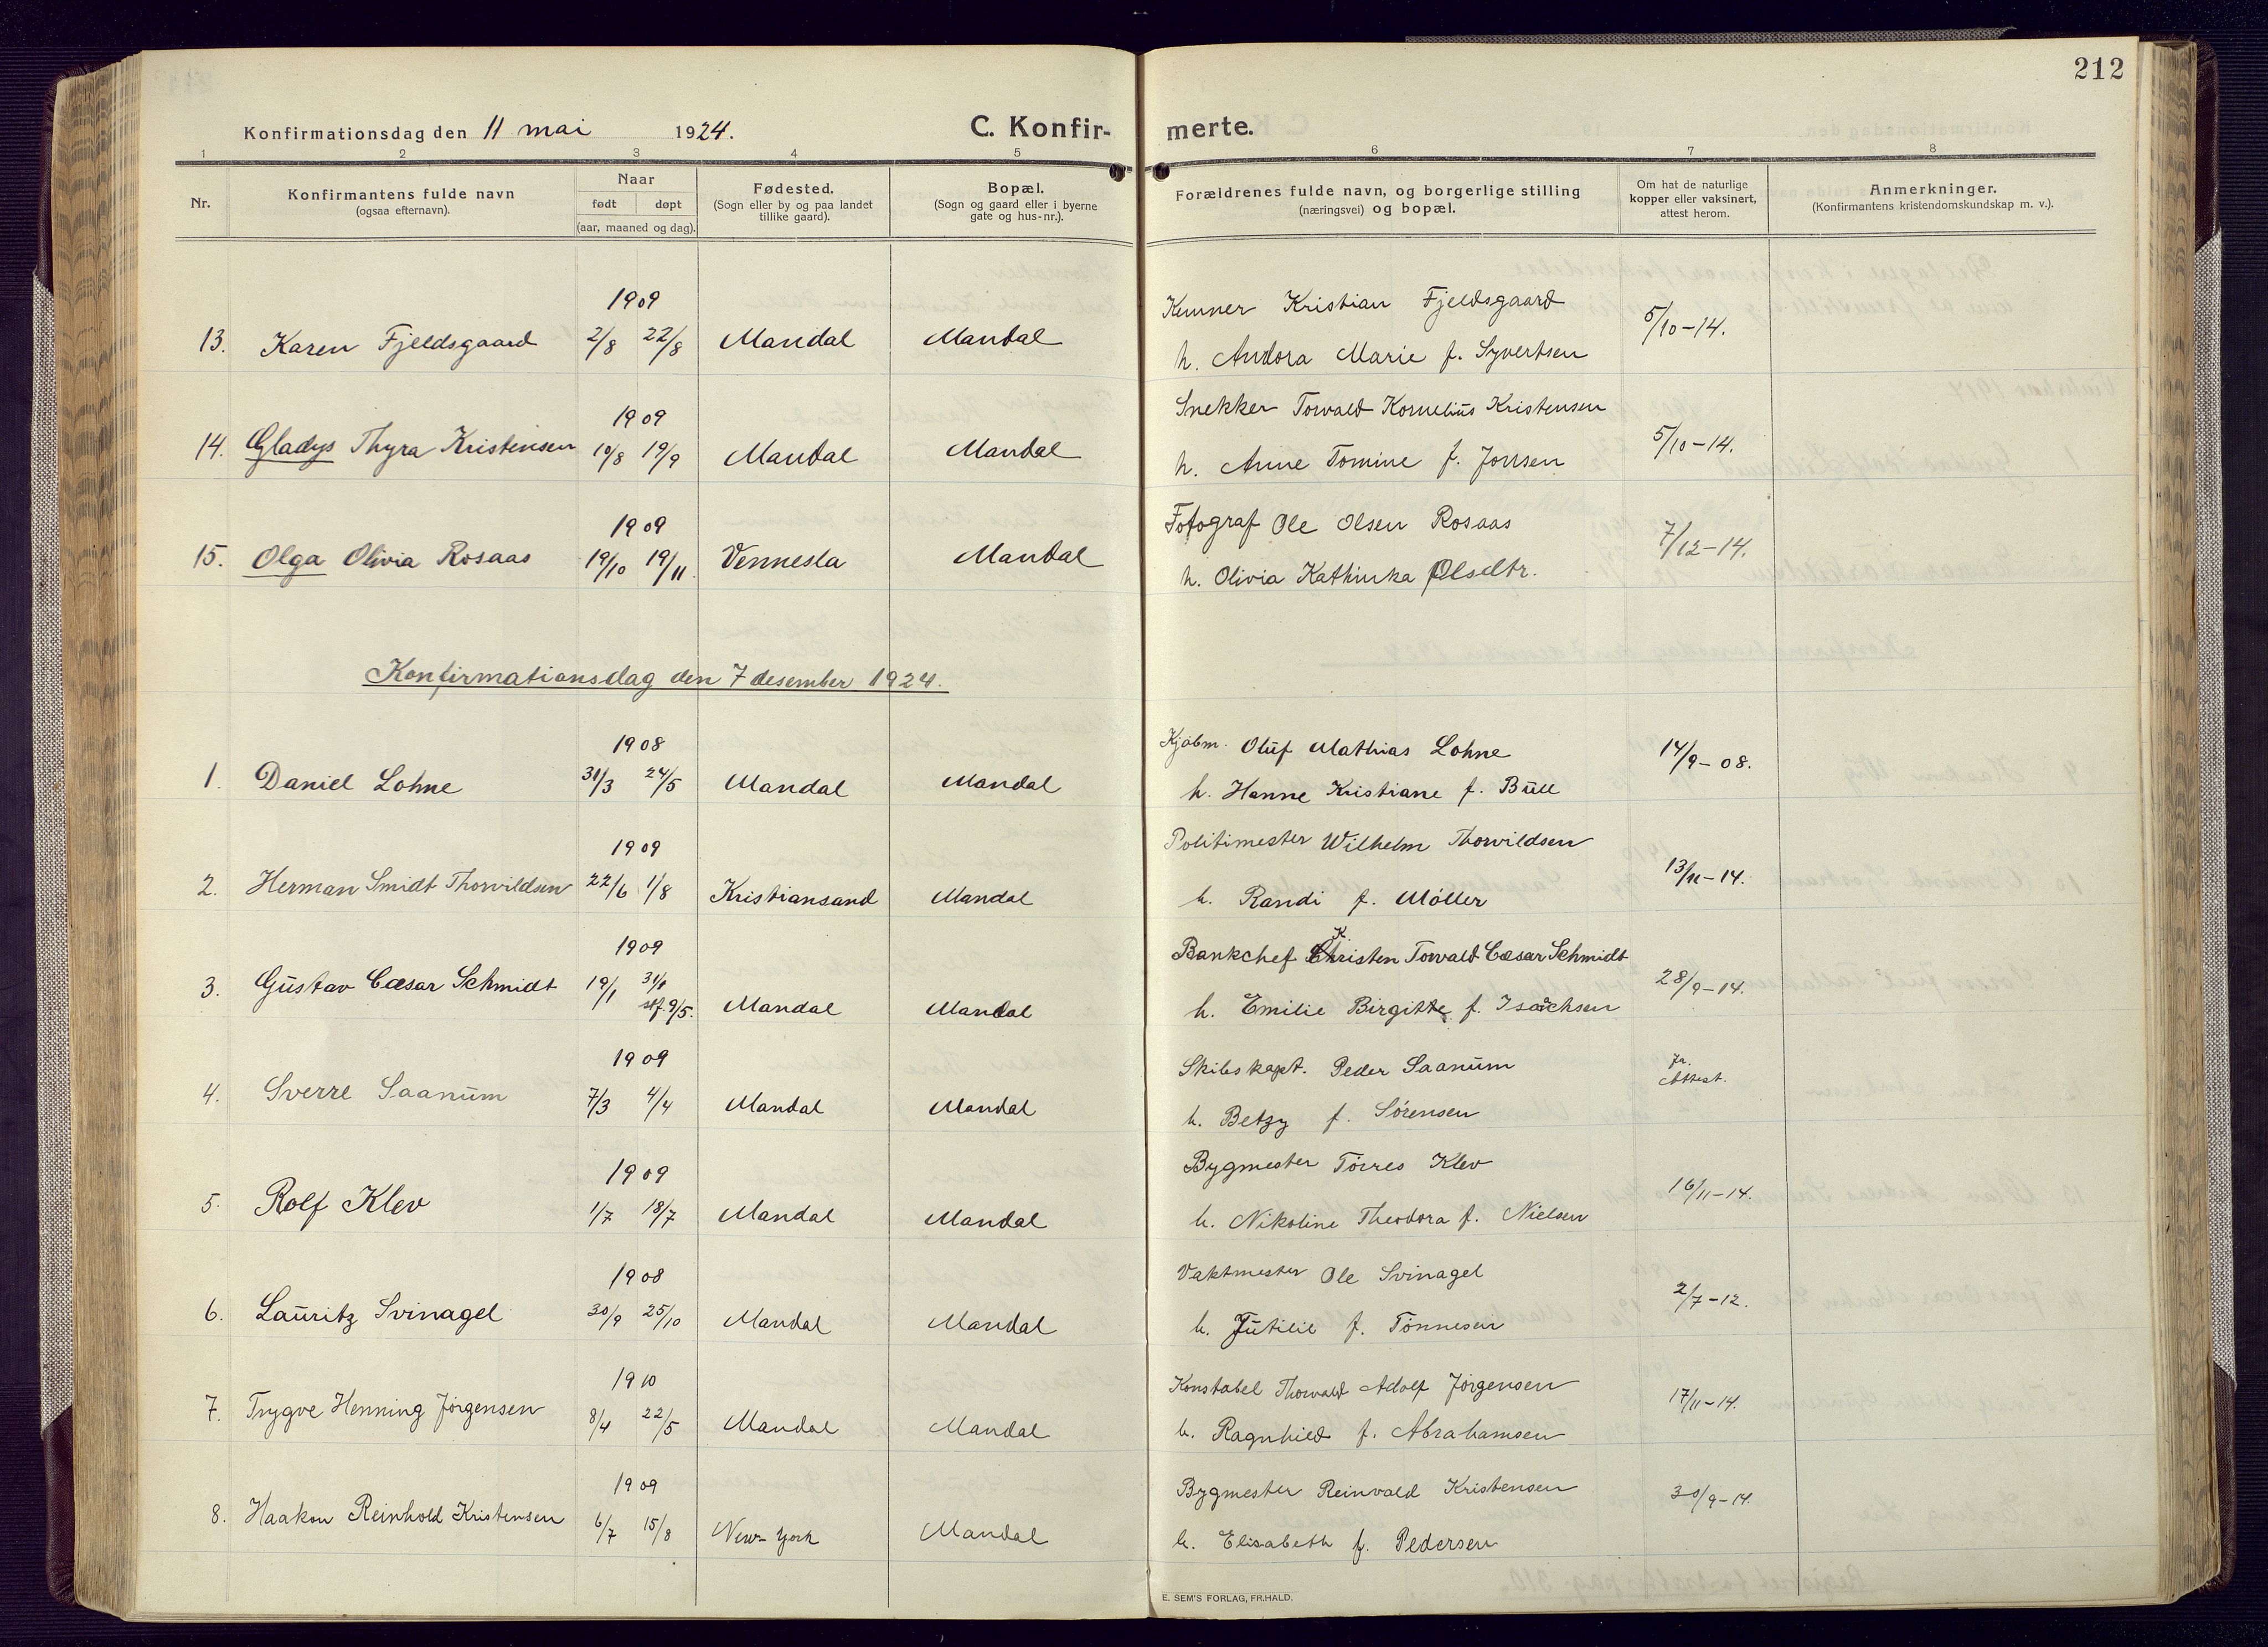 212
Konfirmationsdag den 11 mai 1924. C. Konfir- merte.
1 2 3 4 5 6 7 8
Nr. Konfirmantens fulde navn (ogsaa efternavn). Naar født døpt (aar, maaned og dag). Fødested. (Sogn eller by og paa landet tillike gaard). Bopæl. (Sogn og gaard eller i byerne gate og hus-nr.). Forældrenes fulde navn, og borgerlige stilling (næringsvei) og bopæl. Om hat de naturlige kopper eller vaksinert, attest herom. Anmerkninger. (Konfirmantens kristendomskundskap m. v.).
1909 Kemner Kristian Fjeldsgaard
13. Karen Fjeldsgaard 2/8 22/8 Mandal Mandal 5/10-14.
h. Andora Marie f. Syvertsen
1909 Snekker Torvald Kornelius Kristensen
14. Gladys Thyra Kristensen 10/8 19/9 Mandal Mandal 5/10-14.
h. Anne Tomine f. Jonsen
1909 Fotograf Ole Olsen Rosaas
15. Olga Olivia Rosaas 19/10 19/11. Vennesla Mandal 7/12-14.
h. Olivia Kathinka Olsdtr.
Konfirmationsdag den 7 desember 1924.
1908 Kjøbm. Oluf Mathias Lohne
1. Daniel Lohne 31/3 24/5 Mandal Mandal 14/9-08.
h. Hanne Kristiane f. Bull
1909 Politimester Wilhelm Thorvildsen
2. Herman Smidt Thorvildsen 22/6 1/8 Kristiansand Mandal 13/11-14.
h. Randi f. Møller
1909 Bankchef Christen Torvald Cæsar Schmidt
3. Gustav Cæsar Schmidt 19/1 31/1 stf. 9/5. Mandal Mandal 28/9-14.
h. Emilie Birgitte f. Isachsen
1909 Skibskapt. Peder Saanum
4. Sverre Saanum 7/3 4/4 Mandal Mandal Attest.
h. Betzy f. Sørensen
1909 Bygmester Tørres Klev
5. Rolf Klev 1/7 18/7 Mandal Mandal 16/11-14.
h. Nikoline Theodora f. Nielsen
1908 Vaktmester Ole Svinagel
6. Lauritz Svinagel 30/9 25/10 Mandal Mandal 2/7-12.
h. Jutilie f. Tønnesen
1910 Konstabel Thorvald Adolf Jørgensen
7. Trygve Henning Jørgensen 8/4 22/5 Mandal Mandal 17/11-14.
h. Ragnhild f. Abrahamsen
1909 Bygmester Reinvald Kristensen
8. Haakon Reinhold Kristensen 6/7 15/8 New-York Mandal 30/9-14.
h. Elisabeth f. Pedersen
E. SEM'S FORLAG, FR.HALD.